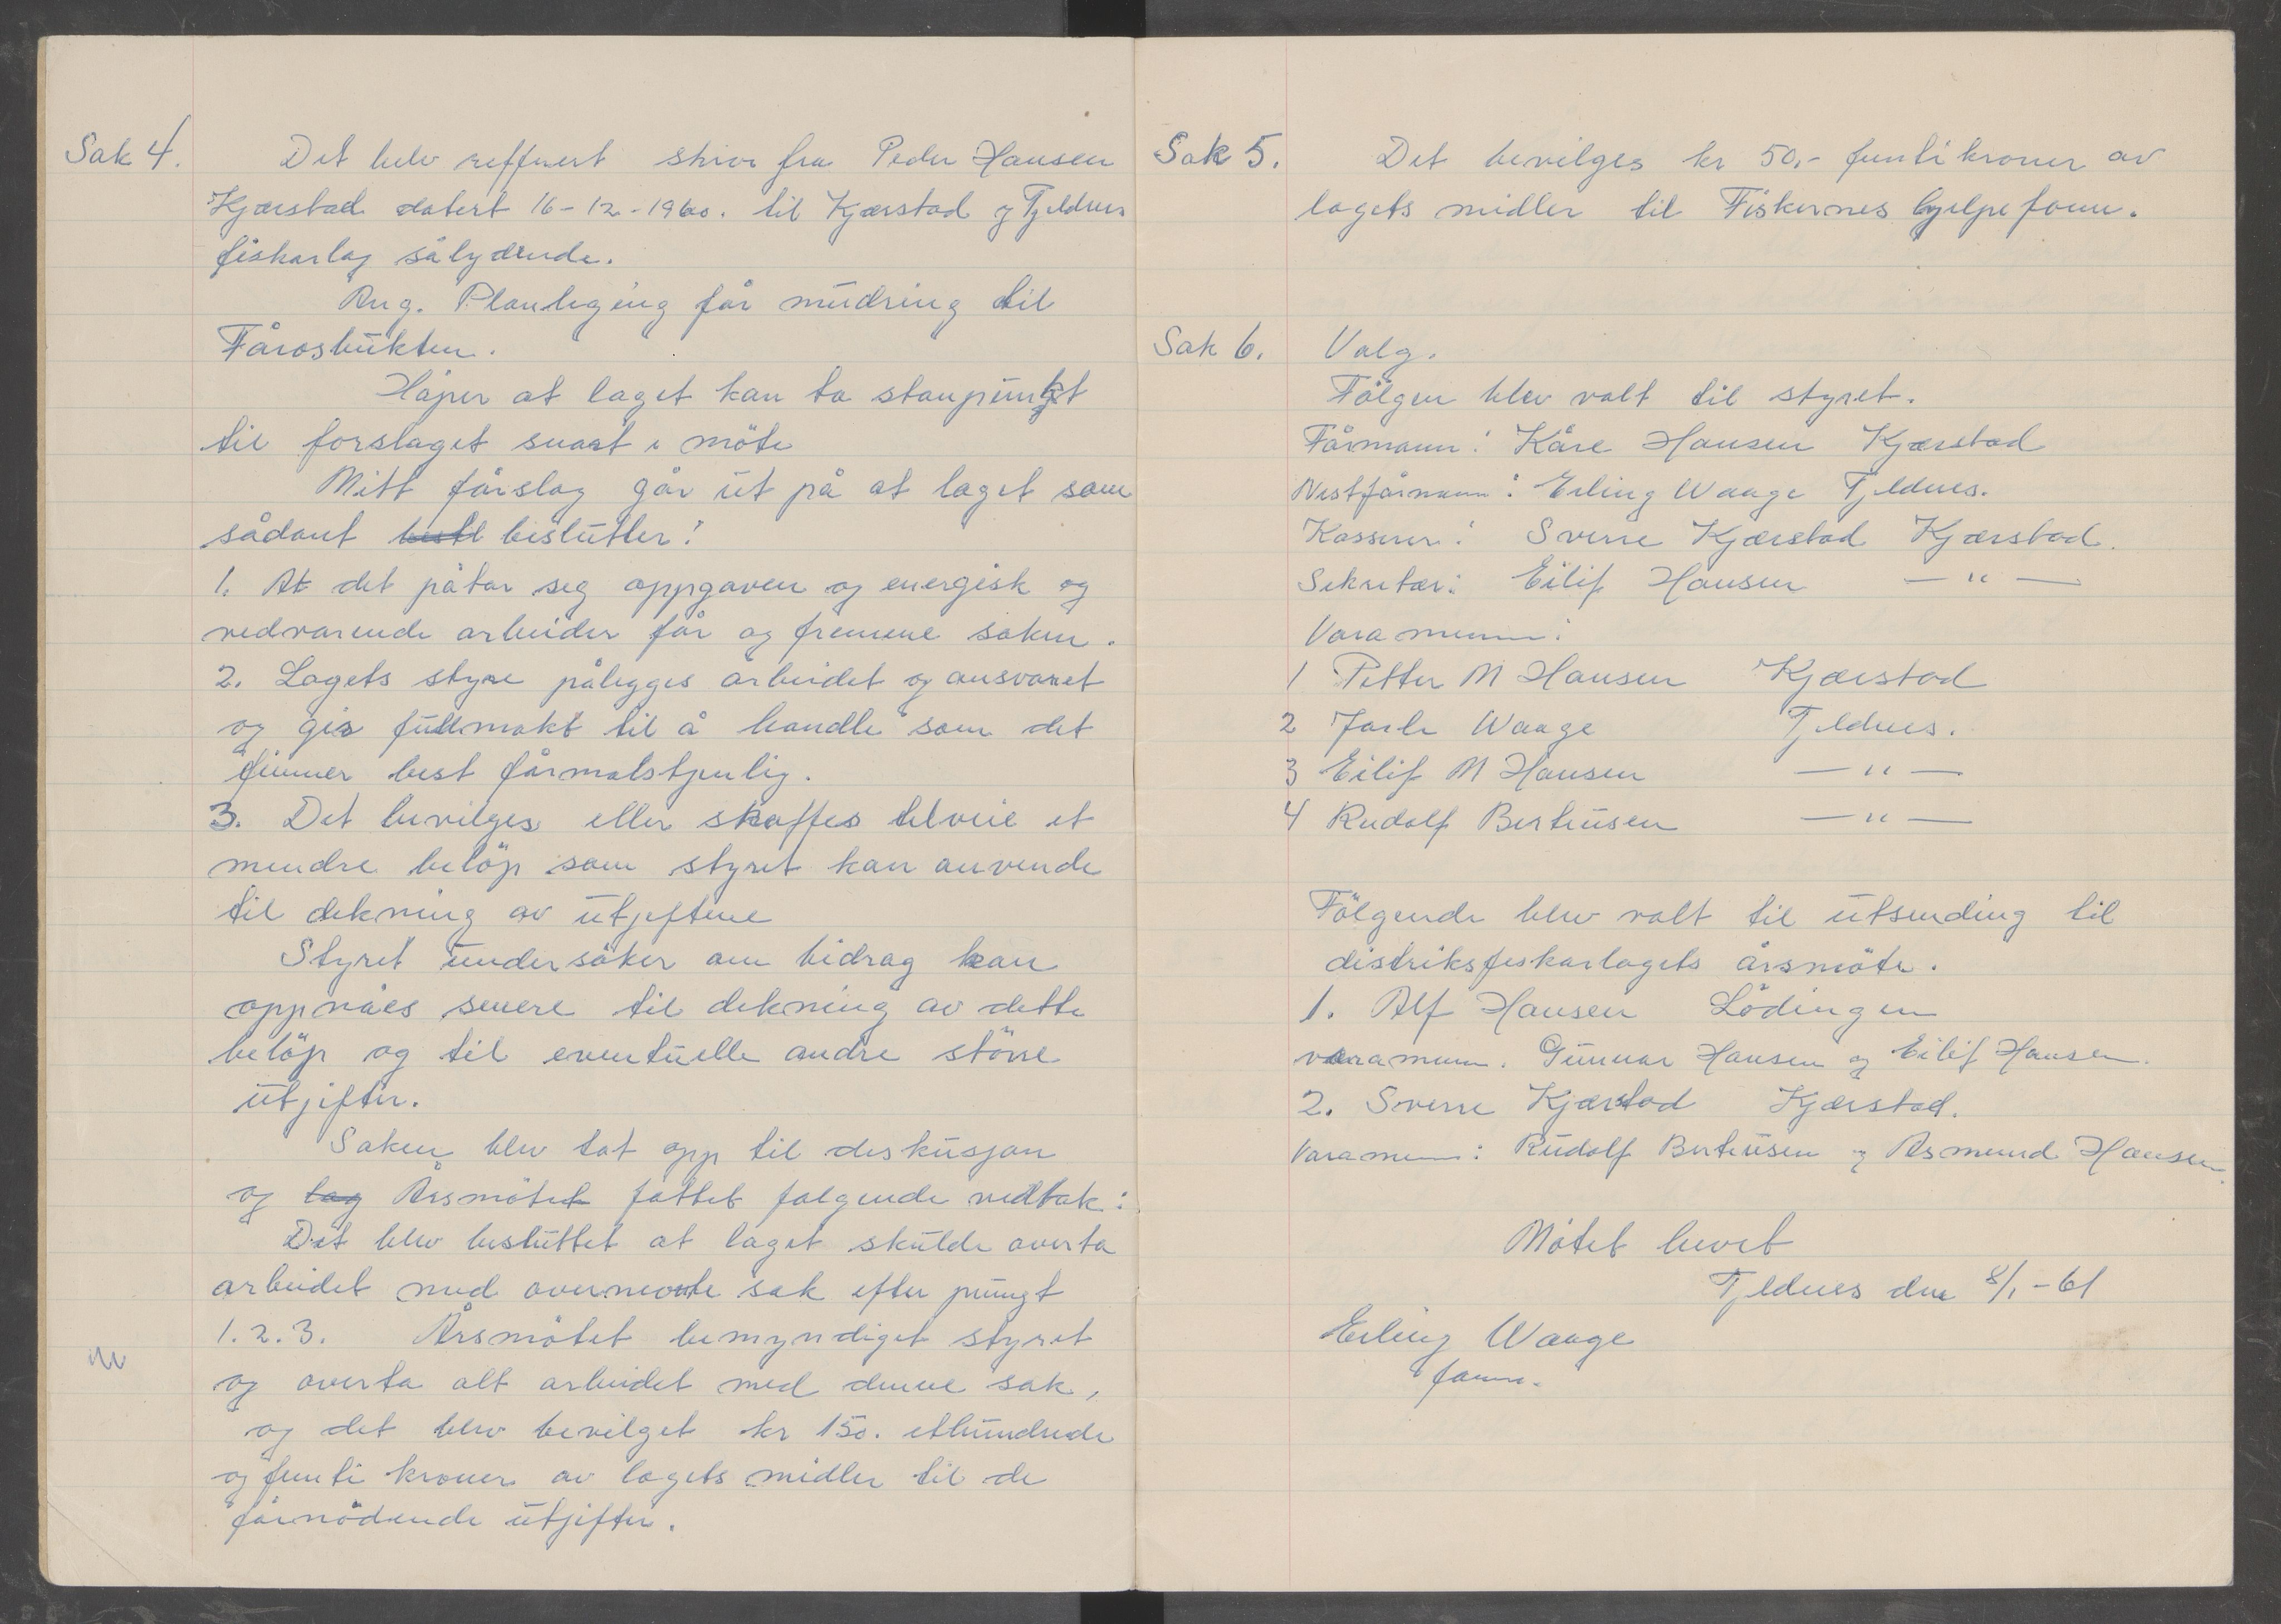 Sak 4. Det belv reffruert skriv fra Peder Hansen
Kjærstad datert 16-12-1960. til Kjærstad og Tjeldnes
fiskarlag sålydende.
Ang. Planleging får mudring til
Fårosbukten.
Håper at laget kan ta stanpunkt
til forslaget snart i möte
Mitt fårslag går ut på at laget som
sådant beslutter:
1. At det påtar seg oppgaven og energisk og
vedvarende arbeider får og fremme saken.
2. Lagets styre pålegges arbeidet og ansvaret
og gis fullmakt til å handle som det
finner best fårmalstjenlig.
3. Det bevilges eller skaffes tilveie et
mendre belöp som styret kan anvende
til dekning av utjeftene
Styret undersöker om bidrag kan
oppnåes senere til dekning av dette
belöp og til eventuelle andre större
utjifter.
Saken blev tat opp til deskusjon
og Årsmötet fattet følgende vedtak:
Det blev besluttet at laget skulde overta
arbeidet med overnevnte sak efter pungt
1.2.3. Årsmötet bemyndiget styret
og overta alt arbeidet med denne sak,
og det blev bevilget kr 150. ethundrede
og femti kroner av lagets midler til de
fårnödende utjifter.
Sak 5. Det bevilges kr 50,- femti kroner av
lagets midler til Fiskernes hjelpefonn.
Sak 6. Valg.
Fölgen blev valt til styret.
Fårmann: Kåre Hansen Kjærstad
Nestfårmann: Erling Waage Tjeldnes.
Kasserer: Sverre Kjærstad Kjærstad.
Sekretær: Eilif Hansen — " —
Varamenn:
1 Petter M Hansen Kjærstad
2 Jarle Waage Tjeldnes.
3 Eilif M Hansen — " —
4 Rudolf Berteusen — " —
Fölgende blev valt til utsending til
distriksfeskarlagets årsmöte.
1. Alf Hansen Lödingen
varamenn. Gunnar Hansen og Eilif Hansen.
2. Sverre Kjærstad Kjærstad.
Varamenn: Rudolf Berteusen og Asmund Hansen.
Mötet hevet
Tjeldnes den 8/1-61
Erling Waage
form.